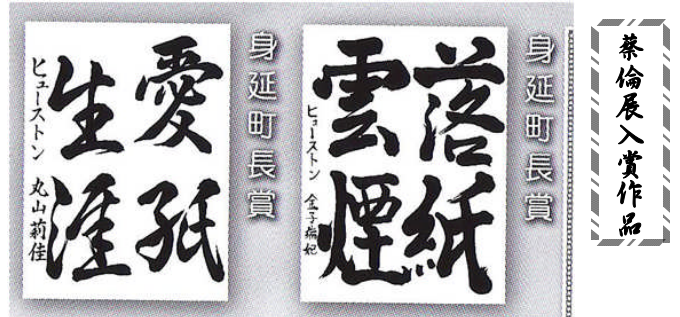 蔡倫展入賞作品
身延町長賞
落紙
雲煙
ヒューストン 金子
身延町長賞
愛紙
生涯
ヒューストン 丸山莉佳